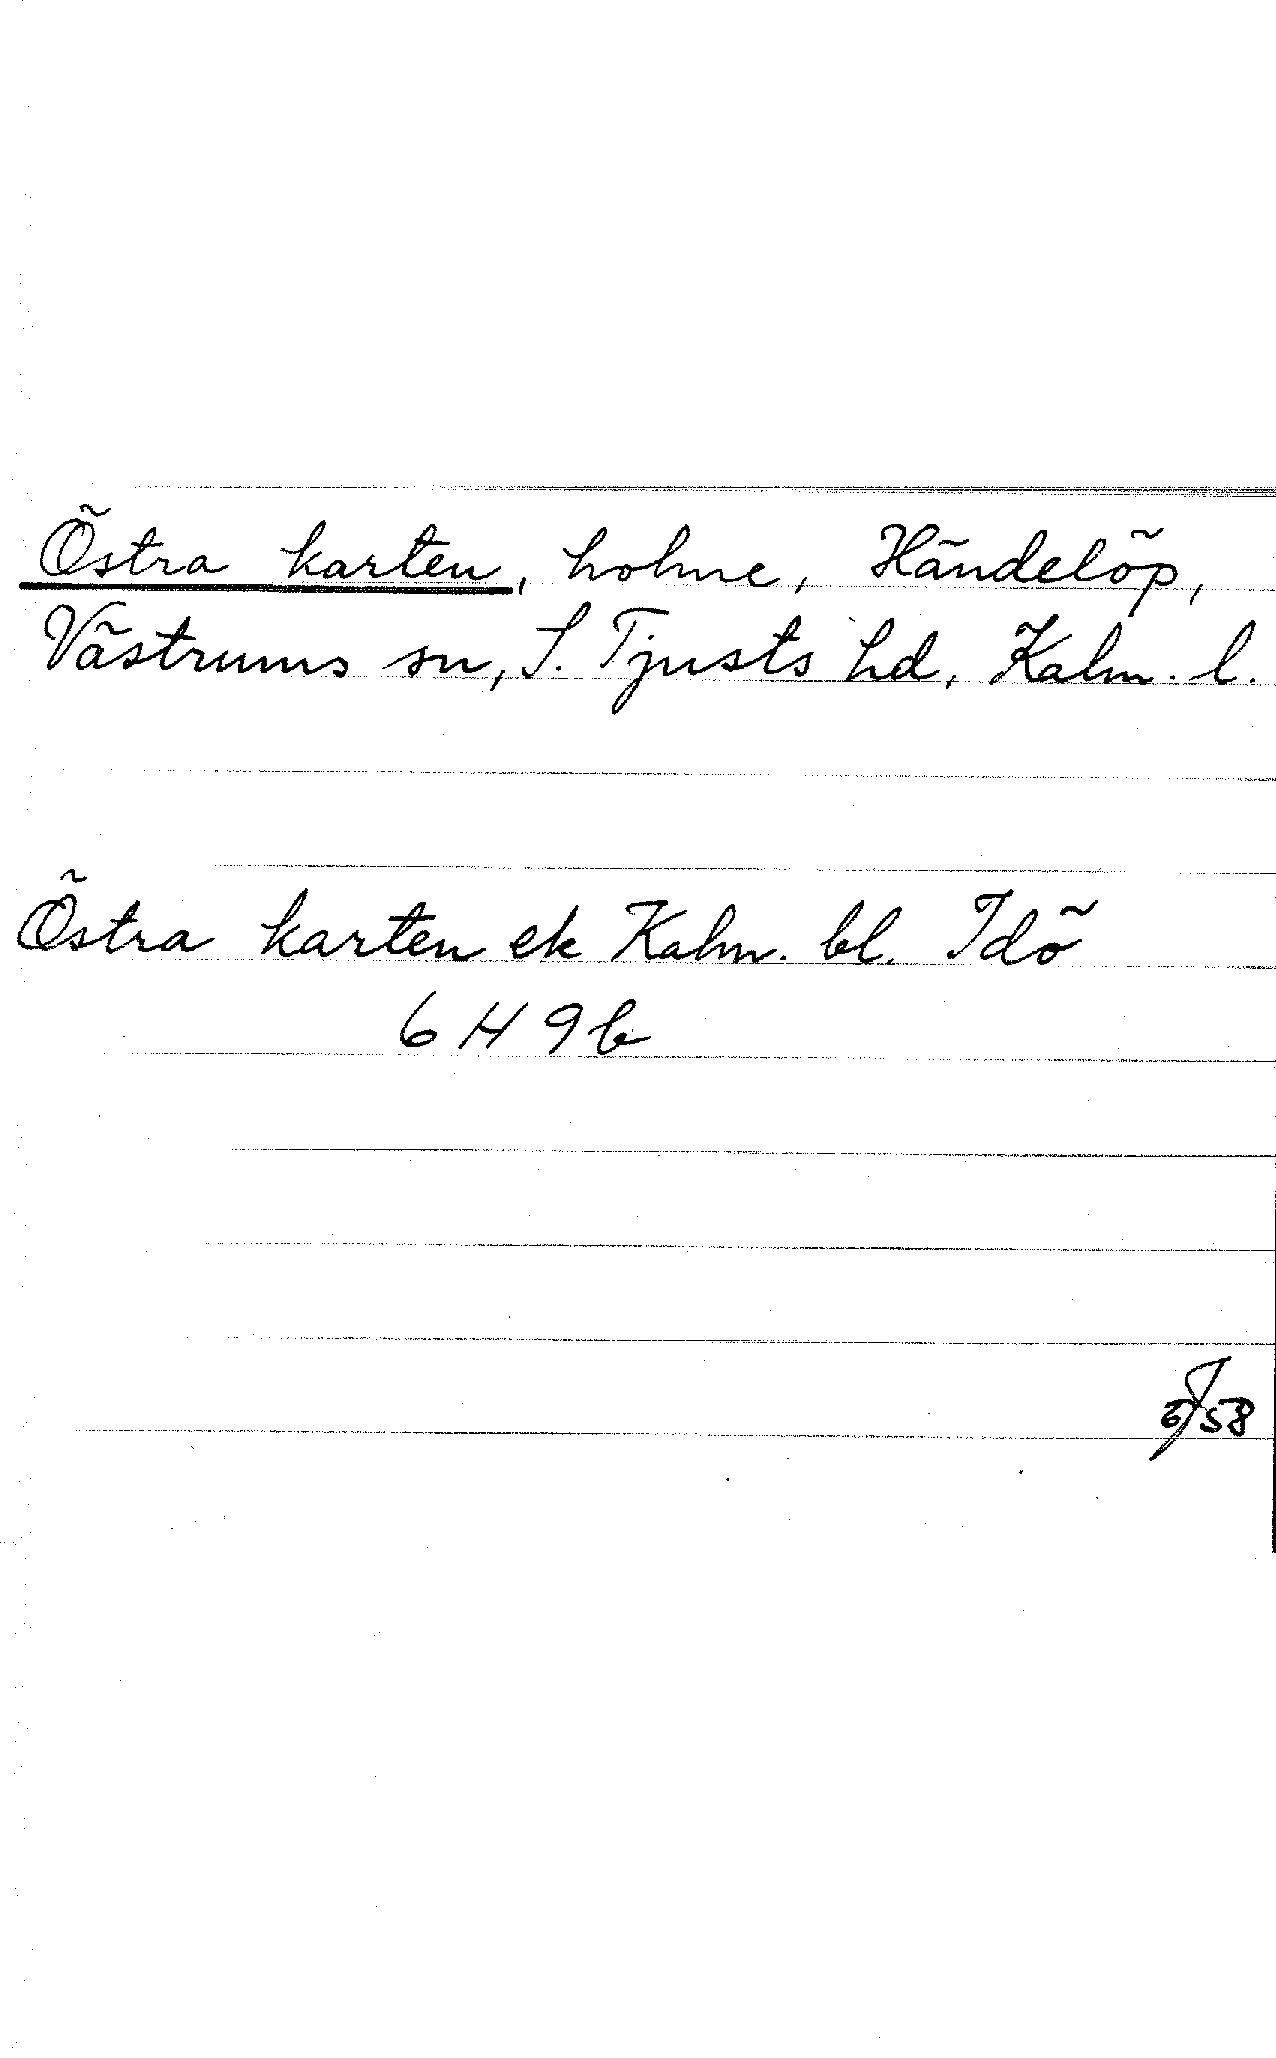 Östra karten, holme, Händelöp,
Västrums sn, S. Tjusts hd, Kalm. l.
Östra karten ek Kalm. bl. Idö
6 H 9 b
58